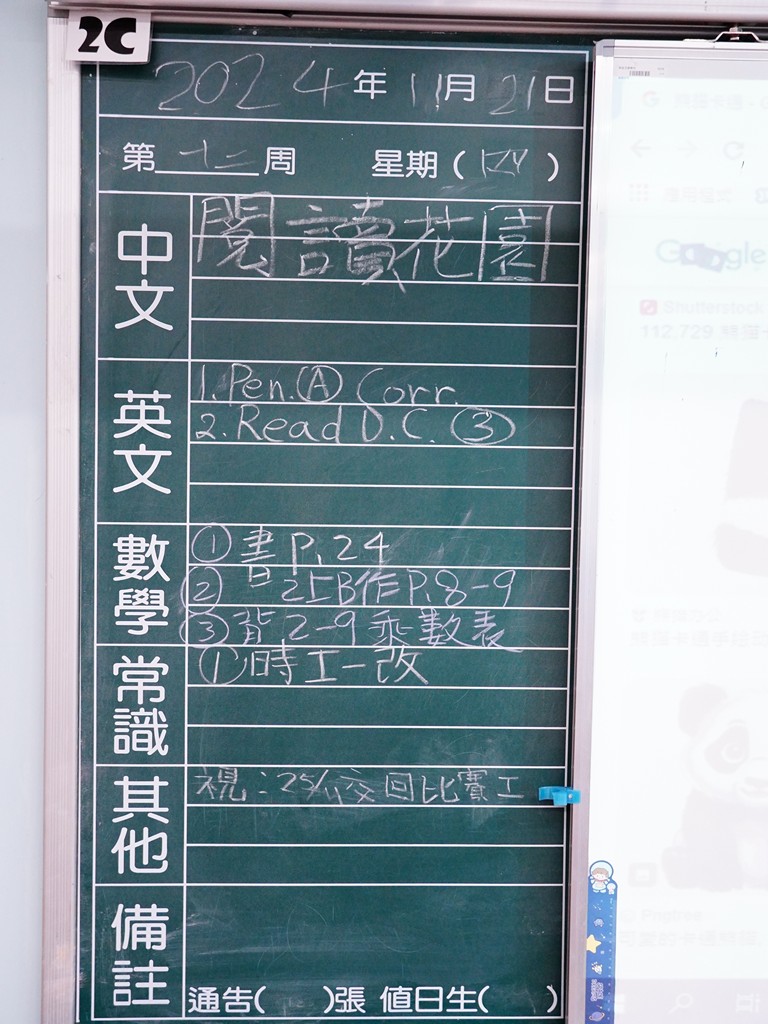 2C
2024年11月21日
第十二周 星期(四)
中文
閱讀花園
英文
1. Pen. Ⓐ Corr.
2. Read D.C. ③
數學
① 書 P.24
② 日 2上B作 P.8-9
③ 背 2-9 乘數表
常識
① 時工一改
其他
視：25/11交回比賽工
備註
通告( )張 值日生( )
Google
Shutterstock
112,729